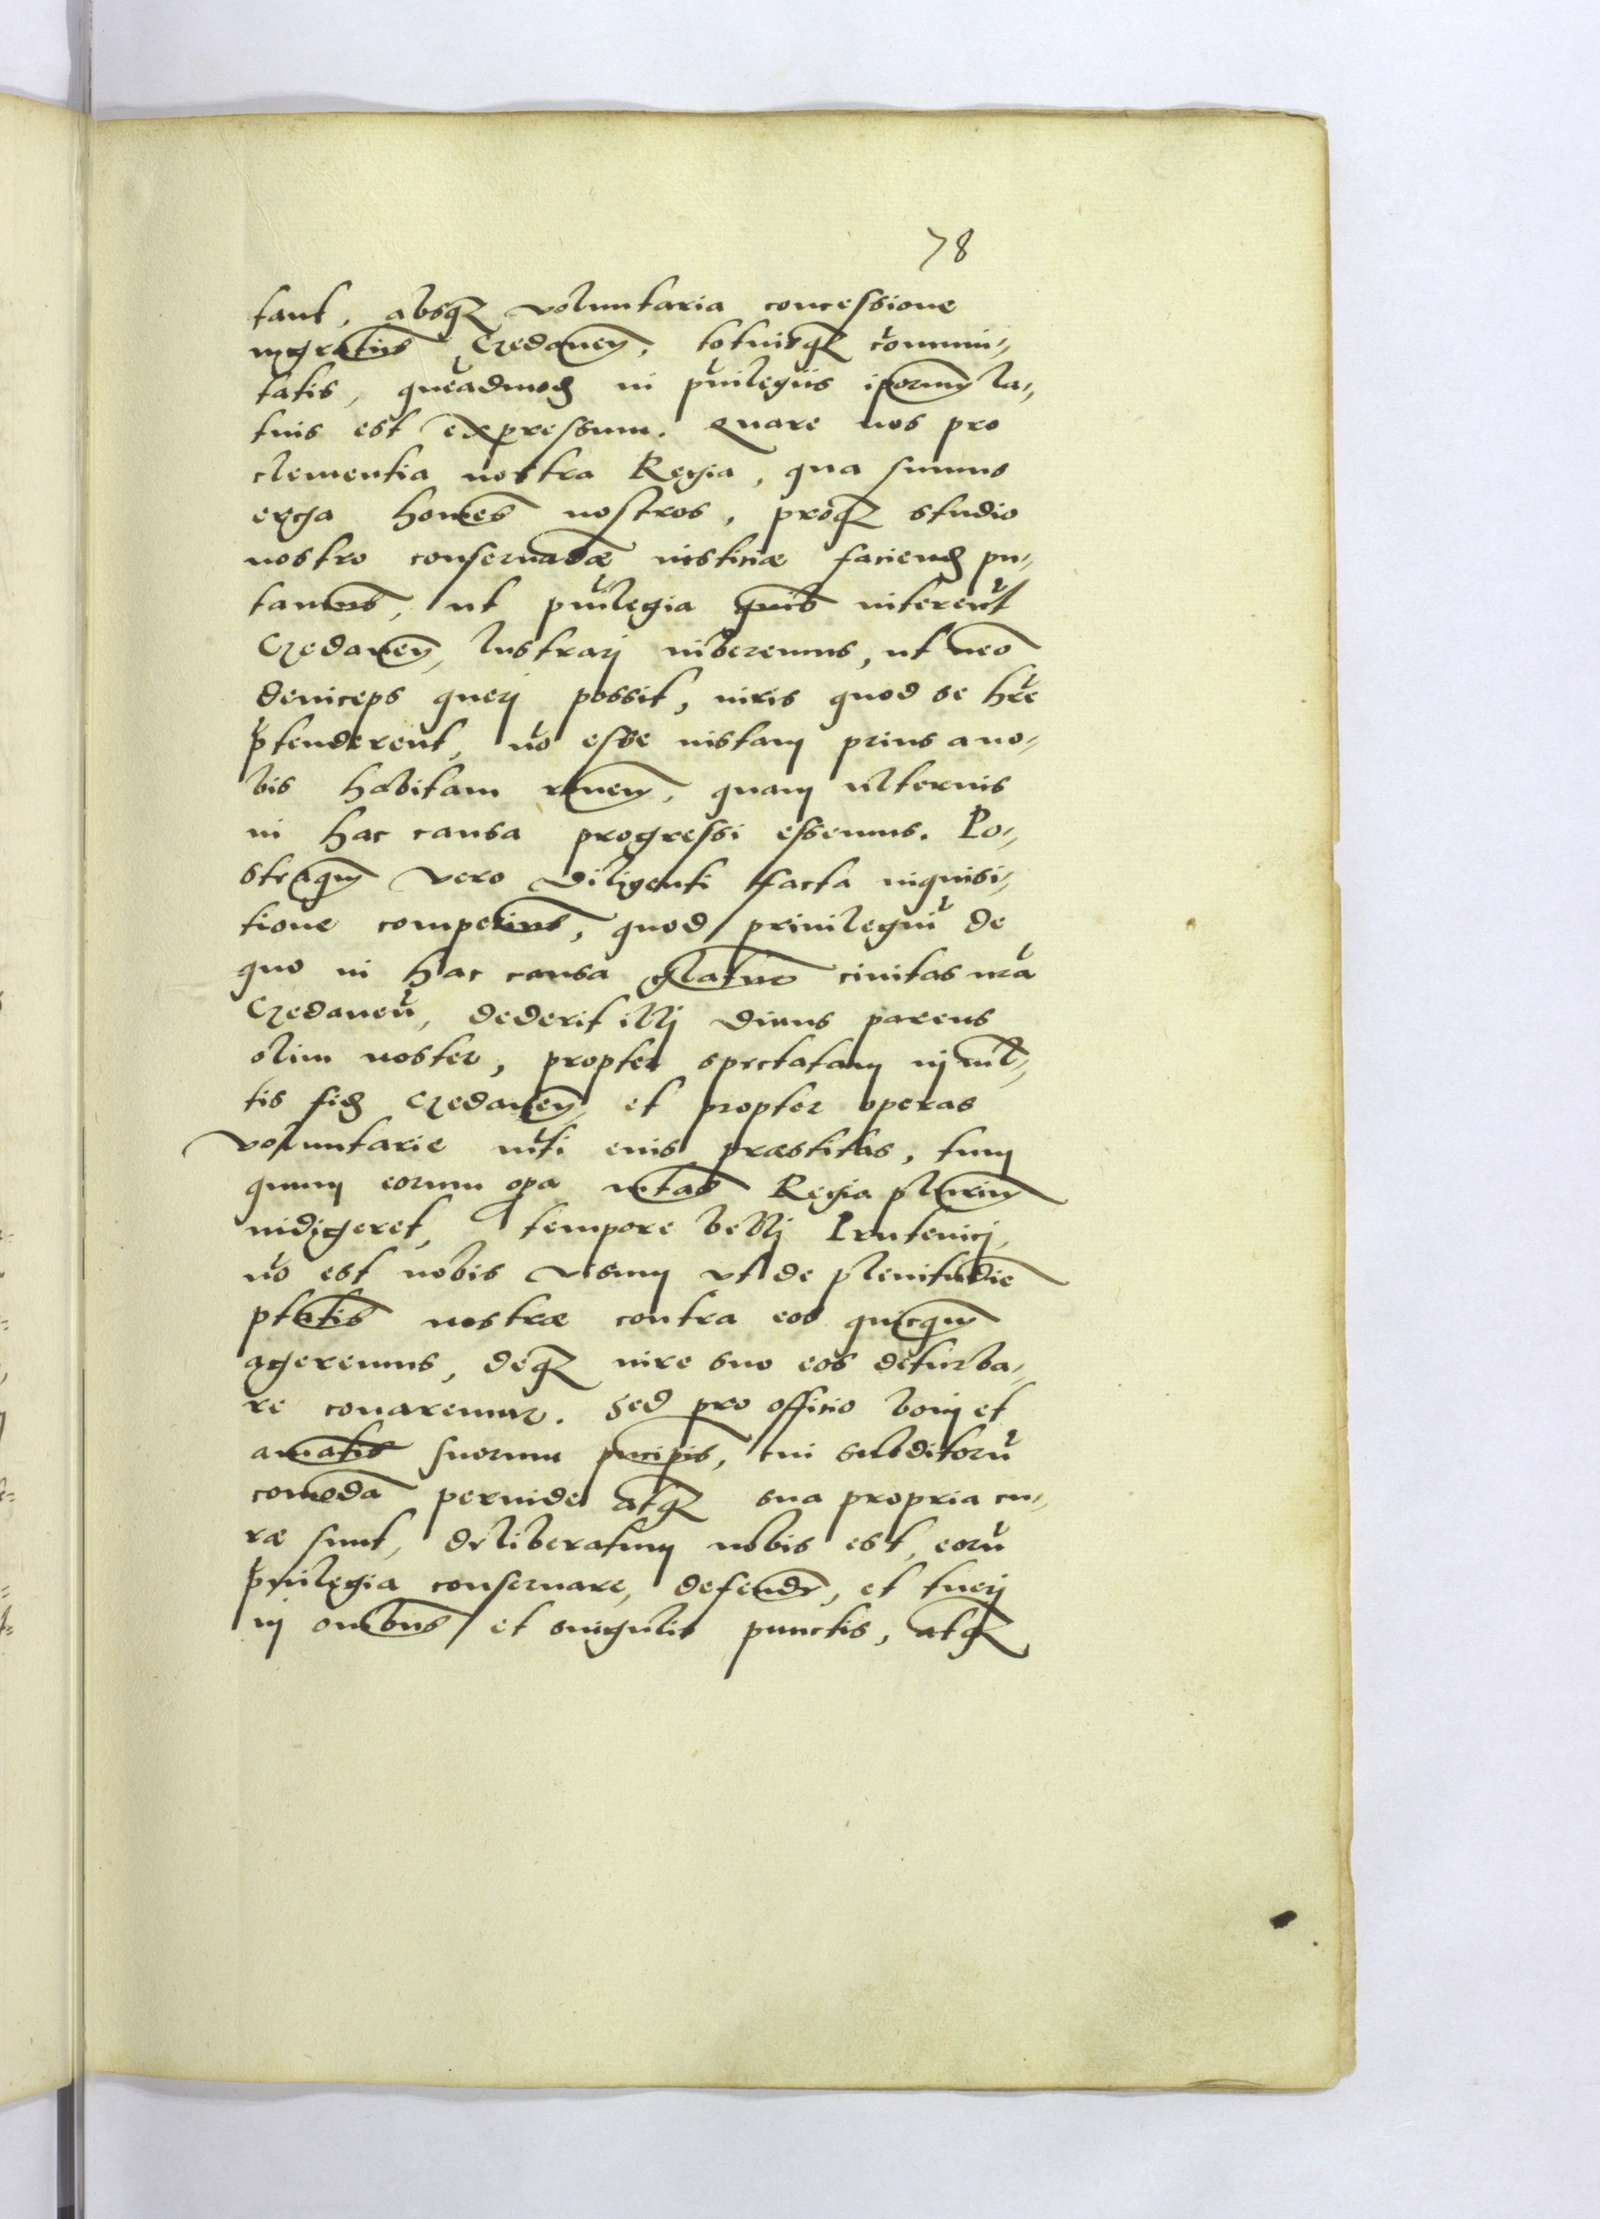 78
tant, absqȝ voluntaria concessione
mgratus Gedanen̄, totiusqȝ commui-
tatis, queadmodȝ in puilegiis ipor̄um la-
tius est expressum. Quare nos pro
clementia nostra Regia, qua sumus
erga homēs nostros, proqȝ studio
nostro conseruādæ iusticiæ faciendȝ pu-
tamus, ut puilegia quib̄ niterent̄
Gedanen̄, lustrarj iuberemus, ut nēo
deinceps querj possit, iuris quod se hr̄e
p̄tenderent, nō esse iustam prius a no-
bis habitam rōnem, quam ulterius
in hac causa progressi essemus. Po-
steaqȝ vero diligenti facta inquisi-
tione comperimus, quod priuilegiū de
quo in hac causa gl̄atur ciuitas nr̄a
Gedanen̄, dederit illj diuus parens
olim noster, propter spectatam in mul-
tis fidȝ Gedanen̄, et propter operas
voluntarie m̄ti eius præstitas, tum
quum eorum opa m̄tas Regia plurim̄
indigeret, tempore bellj Prutenicj,
nō est nobis visum vt de plenitudīe
pt̄atis nostræ contra eos quicqȝ
ageremus, deqȝ iure suo eos deturba-
re conaremur. Sed pro officio bonj et
amātis suorum pncipis, cui subditorū
comoda perinde atqȝ sua propria cu-
ræ sunt, deliberatum nobis est, eorū
puilegia conseruare, defendere, et tuerj
in om̄bus et singulis punctis, atqȝ